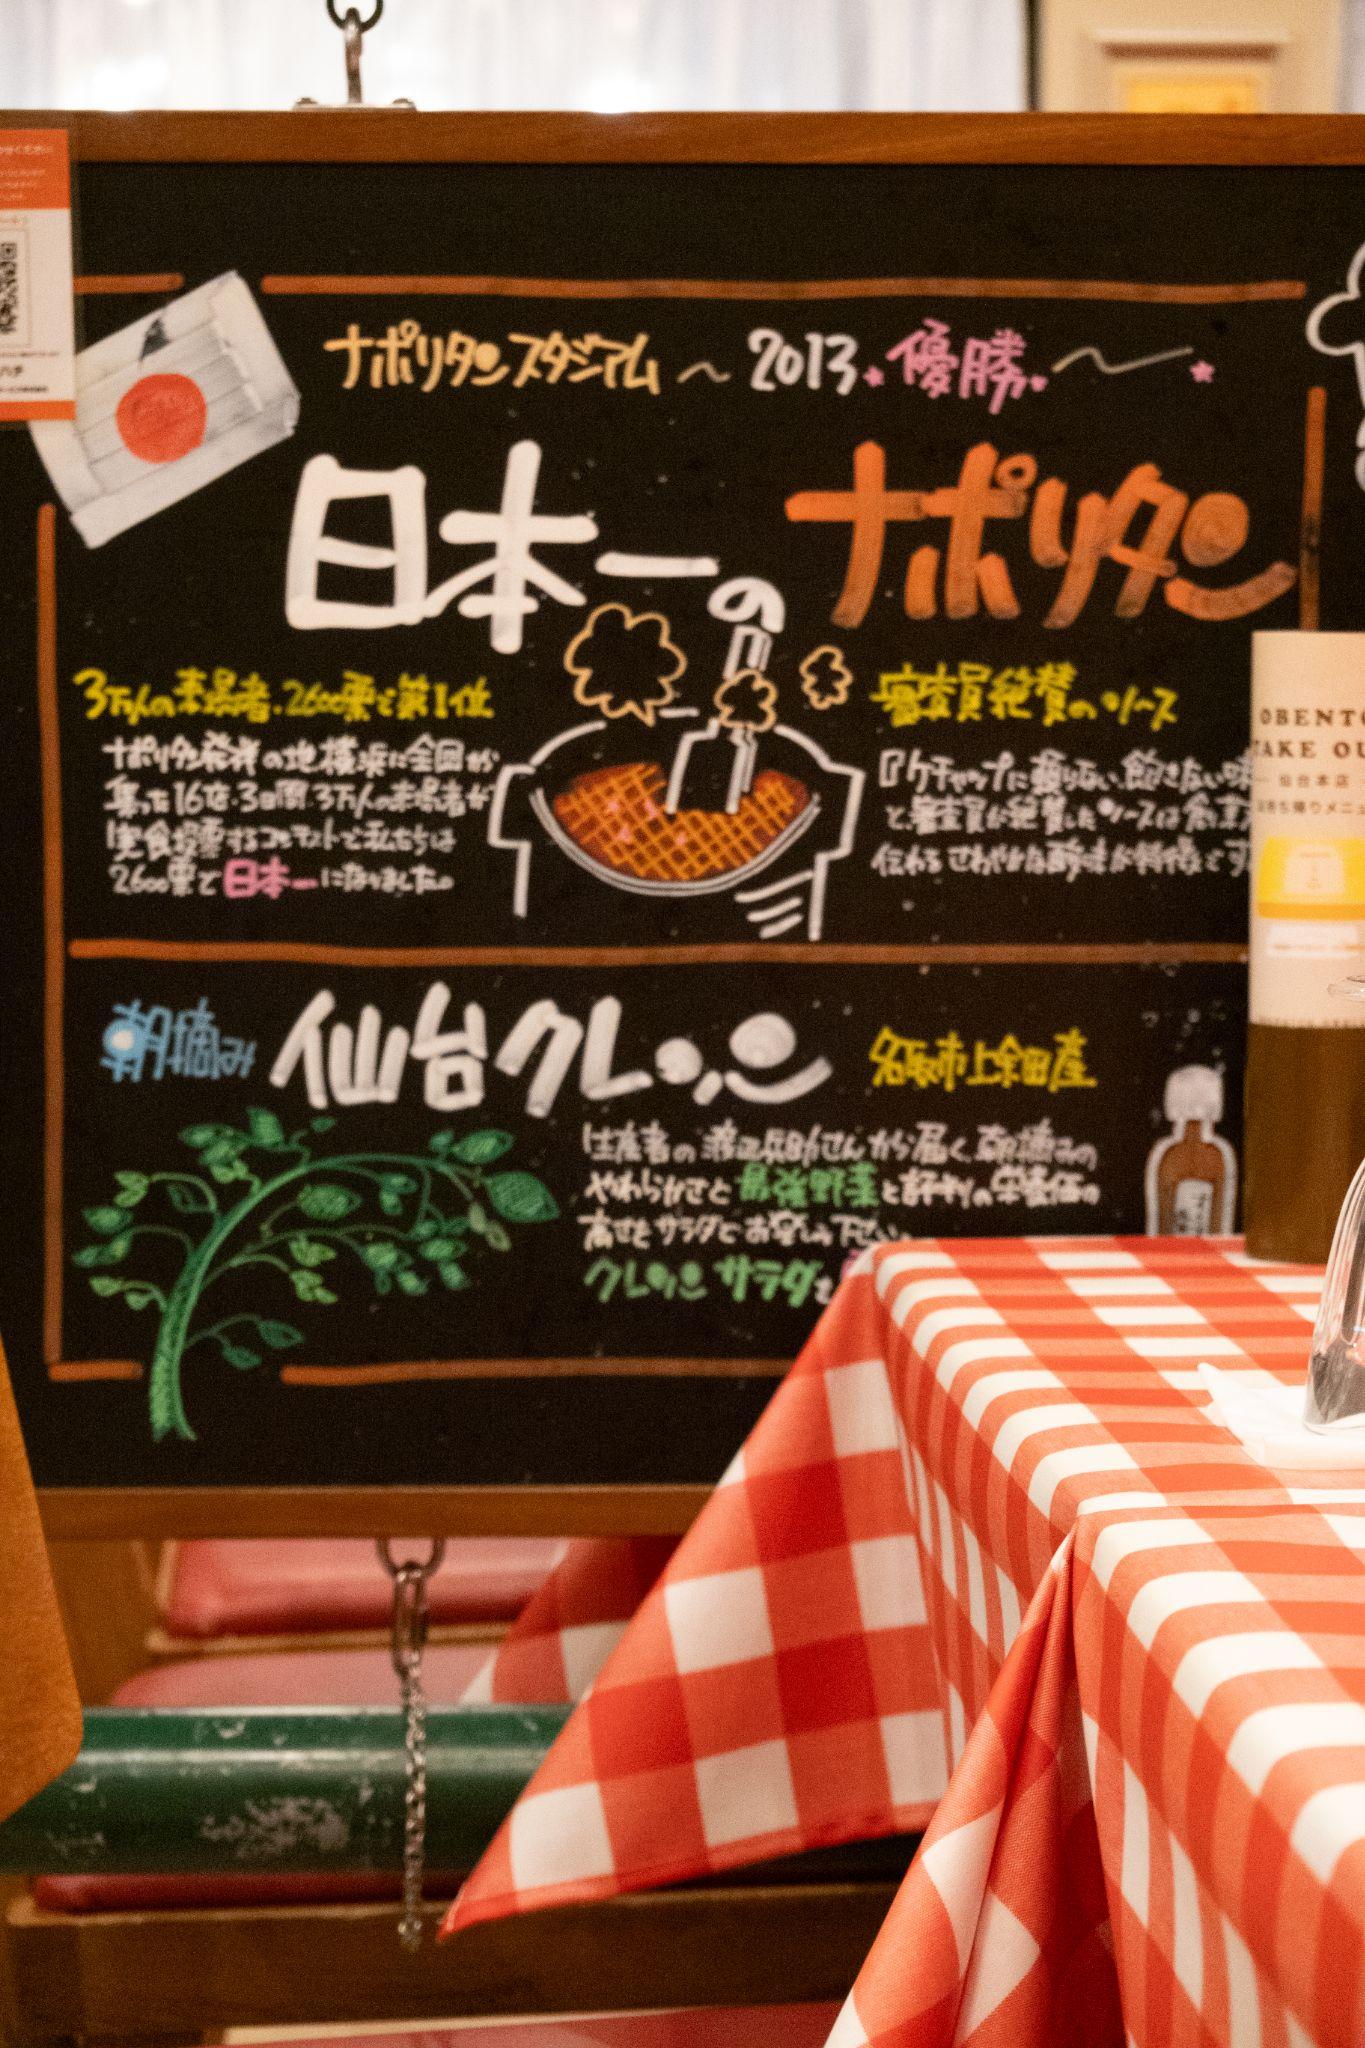 ナポリタンスタジアム〜2013.優勝〜
日本一のナポリタン
3万人の来場者.2600票で第1位
ナポリタン発祥の地横浜に全国から
集った16店.3日間.3万人の来場者が
実食投票するコンテストで私たちは
2600票で日本一になりました。
審査員絶賛のソース
『ケチャップに頼らない、飽きない味
と、審査員が絶賛したソースは
さわやかな酸味が特徴です
朝摘み 仙台クレソン 名取市上余田産
生産者の渡辺兵助さんから届く、朝摘みの
やわらかさと最強野菜と評判の栄養価の
高さをサラダでお楽しみ下さい。
クレソンサラダを
OBENTO
TAKE OU
仙台本店
お持ち帰りメニュ